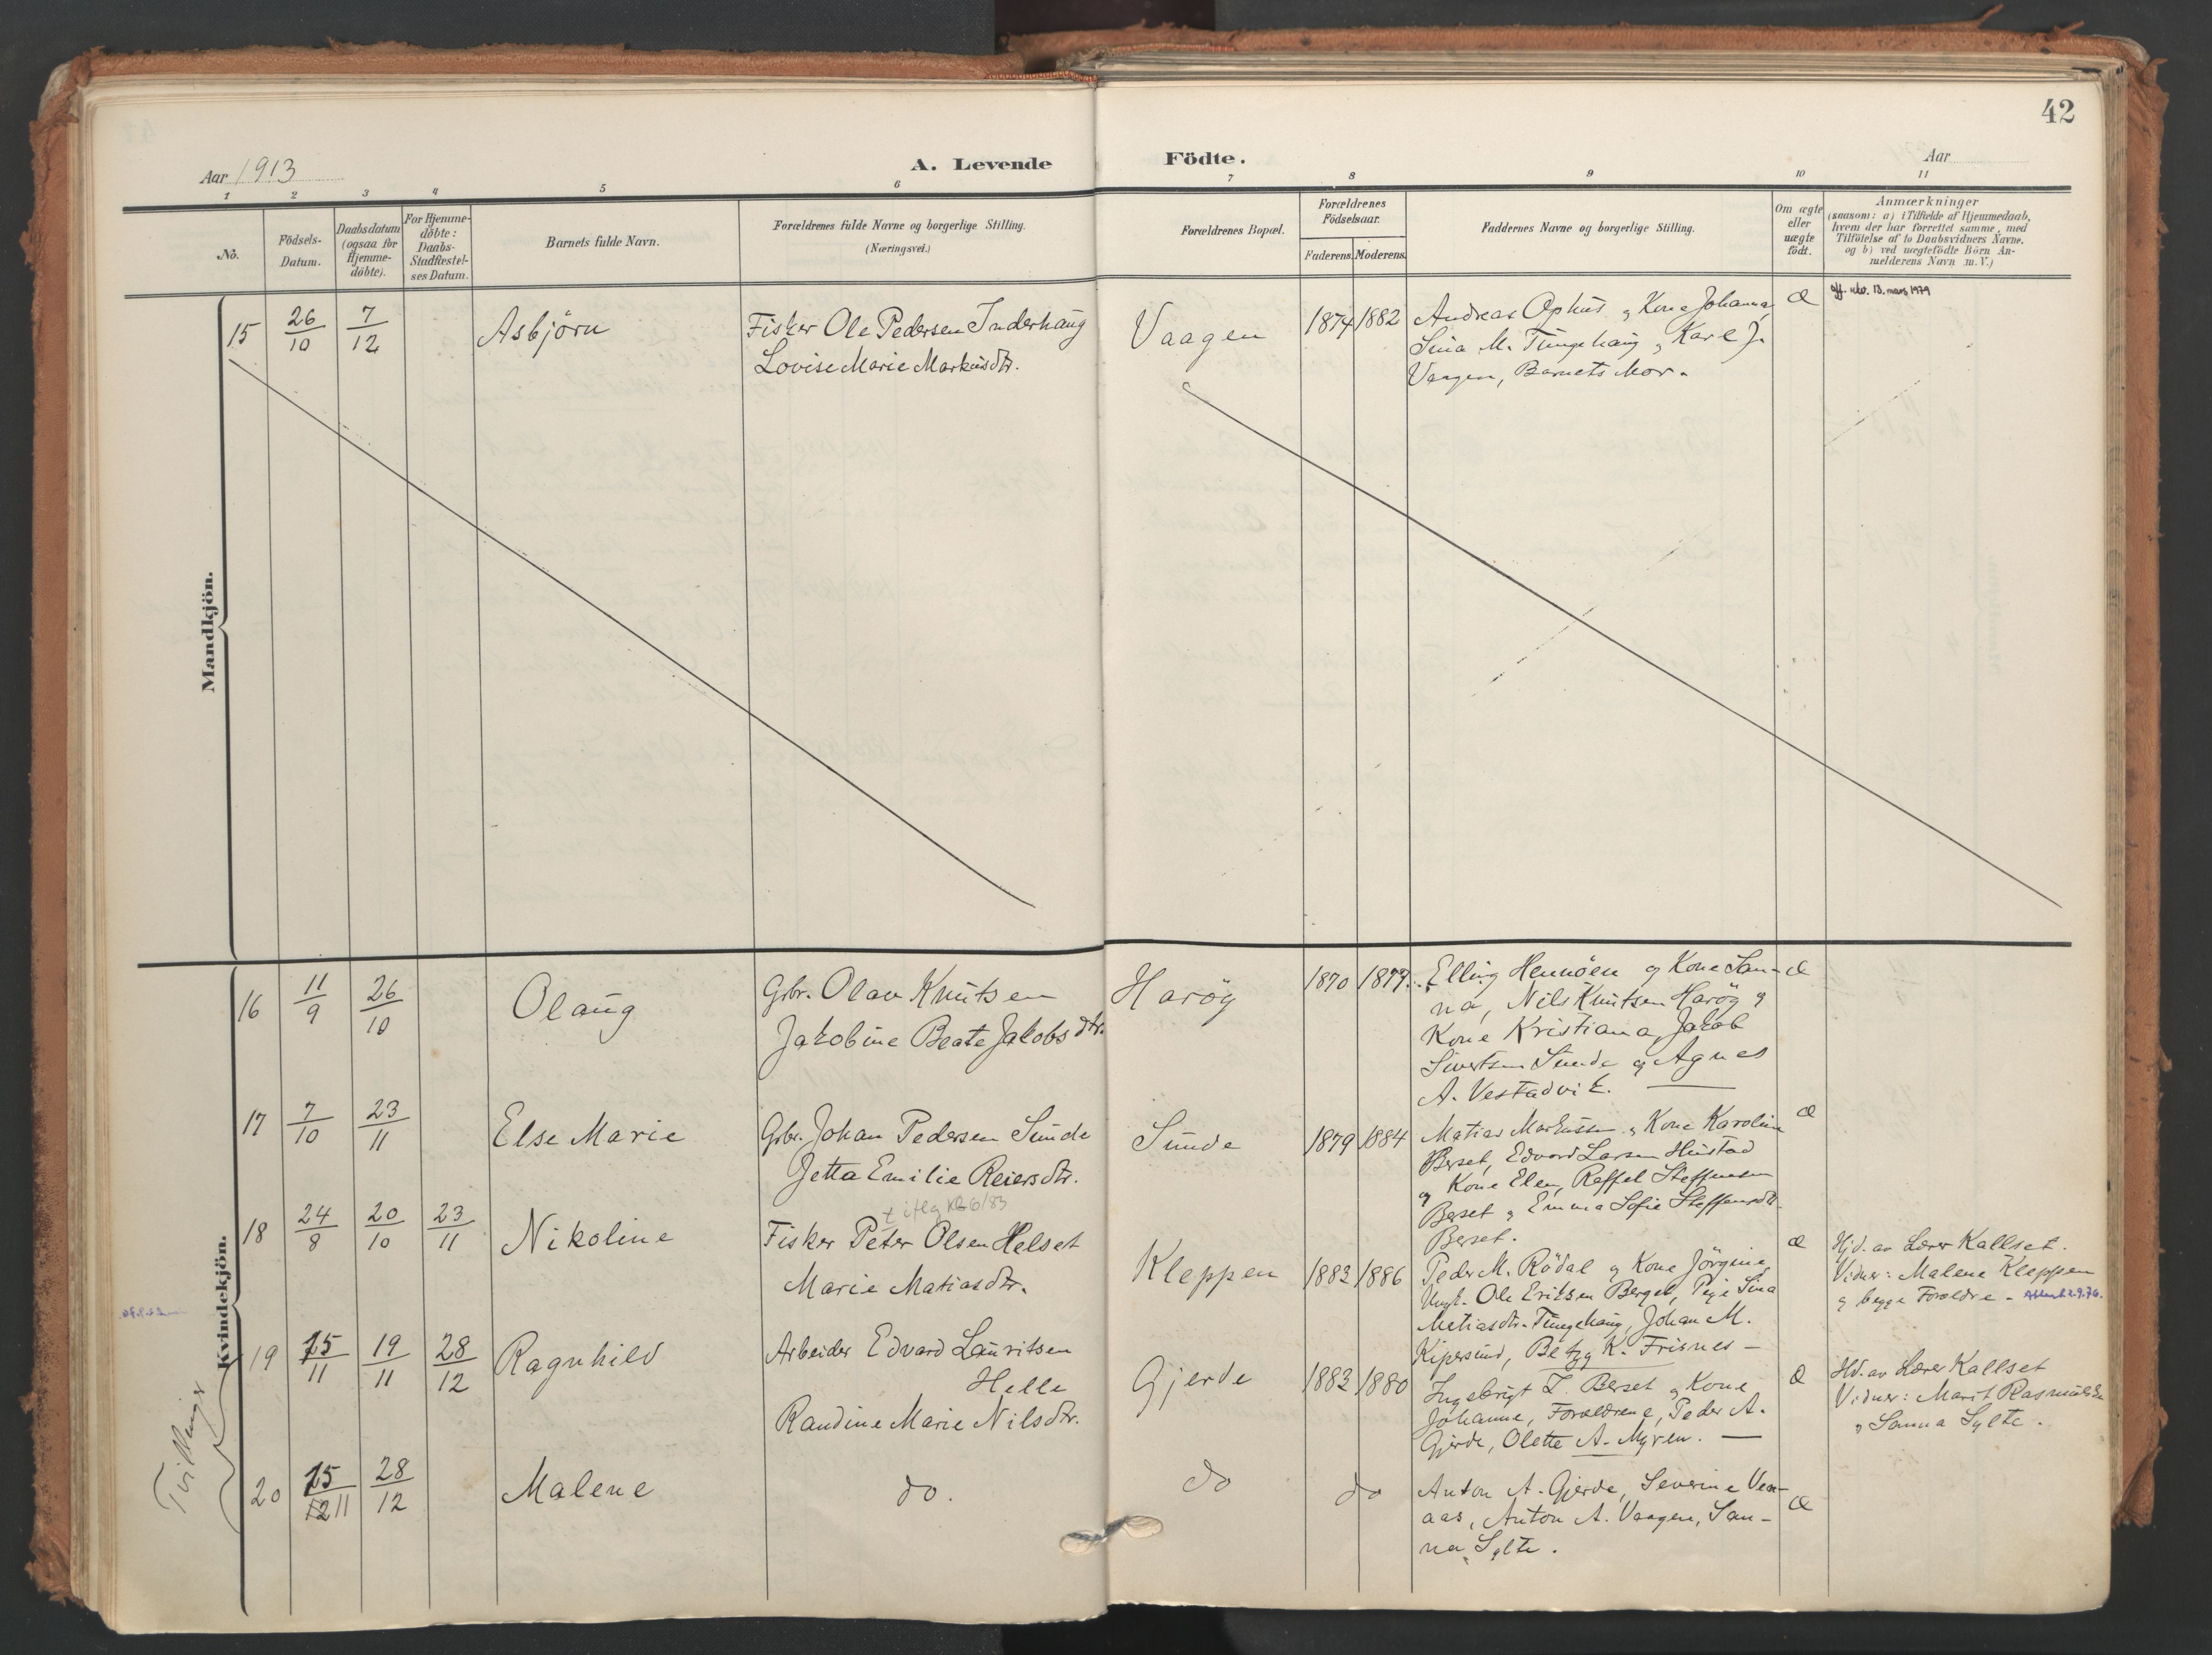 42
Aar 1913
A. Levende Födte.
Aar
1 2 3 4 5 6 7 8 9 10 11
No.
Födsels-Datum.
Daabsdatum (ogsaa for Hjemme-döbte).
For Hjemme-döbte: Daabs-Stadfæstel-ses Datum.
Barnets fulde Navn.
Forældrenes fulde Navne og borgerlige Stilling.
(Næringsvei.)
Forældrenes Bopæl.
Forældrenes Födselsaar.
Faderens. Moderens.
Faddernes Navne og borgerlige Stilling.
Om ægte eller uægte födt.
Anmærkninger
(saasom: a) i Tilfælde af Hjemmedaab,
hvem der har forrettet samme, med
Tilföielse af to Daabsvidners Navne,
og b) ved uegtefödte Börn An-
melderens Navn m. V.)
Mandkjön.
15 26/10 7/12 Asbjörn
Fisker Ole Pedersen Inderhaug
Lovise Marie Markusdtr.
Vaagen 1874 1882
Andreas Ophus og Kone Johanna,
Sina M. Tungehaug, Karl J.
Vaagen, Barnets Mor.
Æ
13. mars 1979
Kvindekjön.
16 11/9 26/10 Olaug
Gbr. Olav Knutsen
Jakobine Beate Jakobsdtr.
Haröy 1870 1877
Elling Hennöen og Kone San-
na, Nils Knutsen Haröy og
Kone Kristiana, Jakob
Sivertsen Sunde og Agnes
A. Vestadvik.
Æ
17 7/10 23/11 Else Marie
Gbr. Johan Pedersen Sunde
Jetta Emilie Reiersdtr.
Sunde 1879 1884
Matias Markussen og Kone Karoline
Berset, Edvard Larsen Hustad
og Kone Elen, Raffel Steffensen
Berset og Emma Sofie Steffensdtr.
Berset.
Æ
18 24/8 20/10 23/11 Nikoline
† iflg KB 6/83
Fisker Peter Olsen Helset
Marie Matiasdtr.
Kleppen 1883 1886
Peder M. Rödal og Kone Jörgine,
Ungk. Ole Eriksen Berget, Pige Sina
Matiasdtr. Tungehaug, Johan M.
Kipersund, Betzy K. Frisnes -
Æ
Hjd. av Lærer Kallset.
Vidner: Malene Kleppen
og begge Forældre -
19 15/11 19/11 28/12 Ragnhild
Arbeider Edvard Lauritsen
Helle
Randine Marie Nilsdtr.
Gjerde 1883 1880
Ingebrigt L. Berset og Kone
Johanne, Forældrene, Peder A.
Gjerde, Olette A. Myren.
Æ
Hd. av Lærer Kallset
Vidner: Marit
og Sanna Sylte.
Tvillinger
20 15/11 28/12 Malene
do.
do do
Anton A. Gjerde, Severine Ven-
aas, Anton A. Vaagen, San-
na Sylte.
Æ